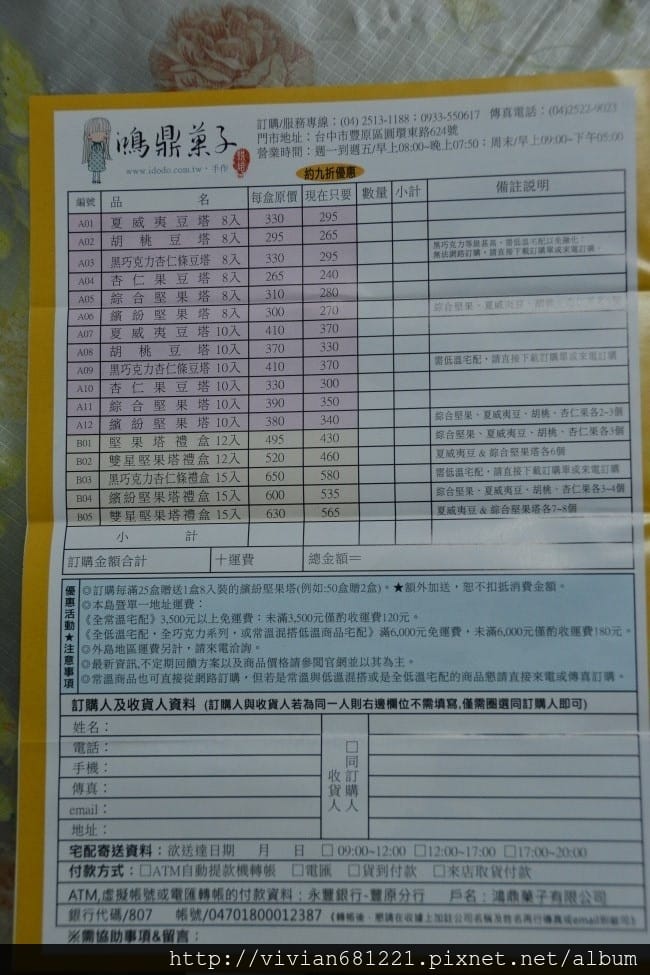 鴻鼎菓子
www.idodo.com.tw
手作
訂購/服務專線：(04) 2513-1188；0933-550617 傳真電話：(04)2522-9023
門市地址：台中市豐原區圓環東路624號
營業時間：週一到週五/早上08:00~晚上07:50；周末/早上09:00~下午05:00
約九折優惠
編號 品名 每盒原價 現在只要 數量 小計 備註說明
A01 夏威夷豆塔 8入 330 295
A02 胡桃豆塔 8入 295 265
A03 黑巧克力杏仁條豆塔 8入 330 295 黑巧克力等級甚高，需低溫宅配以免融化；
無法網路訂購，請直接下載訂購單或來電訂購。
A04 杏仁果豆塔 8入 265 240
A05 綜合堅果塔 8入 310 280
A06 繽紛堅果塔 8入 300 270 綜合堅果、夏威夷豆、胡桃、杏仁果各
A07 夏威夷豆塔 10入 410 370
A08 胡桃豆塔 10入 370 330
A09 黑巧克力杏仁條豆塔 10入 410 370 需低溫宅配，請直接下載訂購單或來電訂購
A10 杏仁果豆塔 10入 330 300
A11 綜合堅果塔 10入 390 350
A12 繽紛堅果塔 10入 380 340 綜合堅果、夏威夷豆、胡桃、杏仁果各2~3個
B01 堅果塔禮盒 12入 495 430 綜合堅果、夏威夷豆、胡桃、杏仁果各3個
B02 雙星堅果塔禮盒 12入 520 460 夏威夷豆 & 綜合堅果塔各6個
B03 黑巧克力杏仁條塔禮盒 15入 650 580 需低溫宅配，請直接下載訂購單或來電訂購
B04 繽紛堅果塔禮盒 15入 600 535 綜合堅果、夏威夷豆、胡桃、杏仁果各3~4個
B05 雙星堅果塔禮盒 15入 630 565 夏威夷豆 & 綜合堅果塔各7~8個
小計
訂購金額合計 +運費 總金額=
優惠活動★注意事項
◎訂購每滿25盒贈送1盒8入裝的繽紛堅果塔(例如:50盒贈2盒)。★額外加送，恕不扣抵消費金額。
◎本島暨單一地址運費：
《全常溫宅配》3,500元以上免運費；未滿3,500元僅酌收運費120元。
《全低溫宅配，全巧克力系列，或常溫混搭低溫商品宅配》滿6,000元免運費，未滿6,000元僅酌收運費180元。
◎外島地區運費另計，請來電洽詢。
◎最新資訊,不定期回饋方案以及商品價格請參閱官網並以其為主。
◎常溫商品也可直接從網路訂購，但若是常溫與低溫混搭或是全低溫宅配的商品懇請直接來電或傳真訂購。
訂購人及收貨人資料 (訂購人與收貨人若為同一人則右邊欄位不需填寫,僅需圈選同訂購人即可)
姓名：
電話：
手機：
傳真：
email：
地址：
收貨人
□同訂購人
宅配寄送資料：欲送達日期 月 日 □ 09:00~12:00 □12:00~17:00 □17:00~20:00
付款方式：□ATM自動提款機轉帳 □電匯 □貨到付款 □來店取貨付款
ATM,虛擬帳號或電匯轉帳的付款資料：永豐銀行-豐原分行 戶名：鴻鼎菓子有限公司
銀行代號/807 帳號/04701800012387 (轉帳後，懇請在收據上加註公司名稱及姓名再行傳真或email到敝司)
※需協助事項&留言：
http://vivian681221.pixnet.net/album